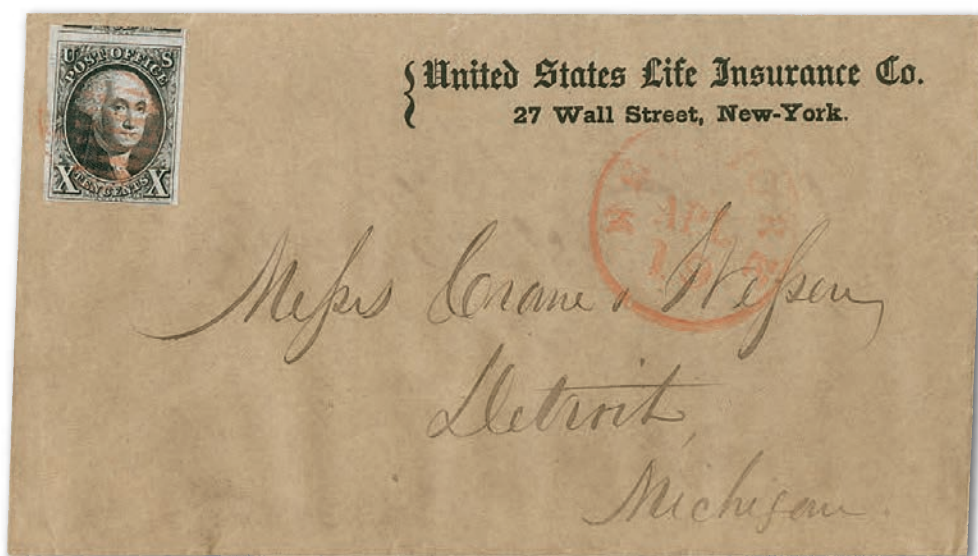 U S
POST OFFICE
X TEN CENTS X
United States Life Insurance Co.
27 Wall Street, New-York.
Messrs Crane & Wesson
Detroit,
Michigan.